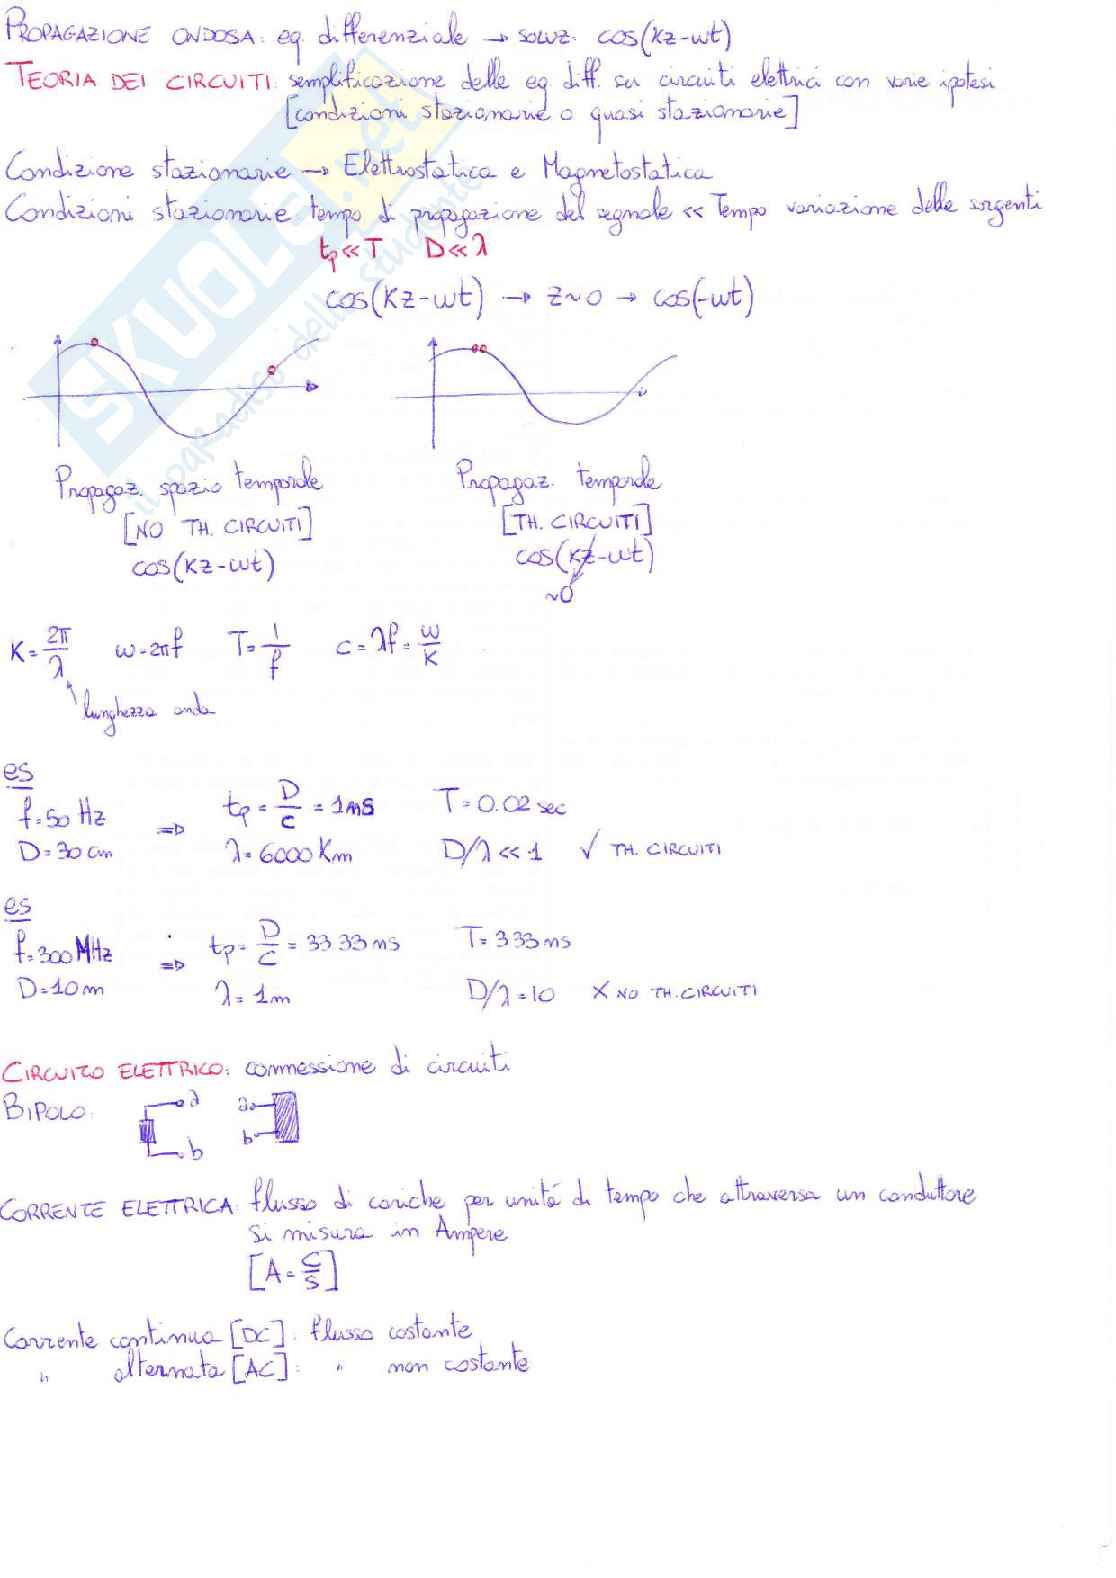 PROPAGAZIONE ONDOSA: eq. differenziale → SOLUZ: cos(Kz-wt)
TEORIA DEI CIRCUITI: semplificazione delle eq. diff. su circuiti elettrici con varie ipotesi
[condizioni stazionarie o quasi stazionarie]
Condizione stazionarie → Elettrostatica e Magnetostatica
Condizioni stazionarie tempo di propagazione del segnale << Tempo variazione delle sorgenti
tp << T D << λ
cos(Kz-wt) → z~0 → cos(-wt)
Propagaz. spazio temporale
[NO TH. CIRCUITI]
cos(Kz-wt)
Propagaz. temporale
[TH. CIRCUITI]
cos(Kz-wt)
~0
K = 2π/λ w = 2πf T = 1/f c = λf = w/K
lunghezza onda
es
f = 50 Hz ⇒ tp = D/c = 1ns T = 0.02 sec
D = 30 cm λ = 6000 Km D/λ << 1 √ TH. CIRCUITI
es
f = 300 MHz ⇒ tp = D/c = 33.33 ns T = 3.33 ns
D = 10 m λ = 1m D/λ = 10 X NO TH. CIRCUITI
CIRCUITO ELETTRICO: connessione di circuiti
BIPOLO:
a
b
a
b
CORRENTE ELETTRICA: flusso di cariche per unità di tempo che attraversa un conduttore
Si misura in Ampere
[A = C/S]
Corrente continua [DC]: flusso costante
" alternata [AC]: " non costante
SKUOLA.net
il paradiso dello studente